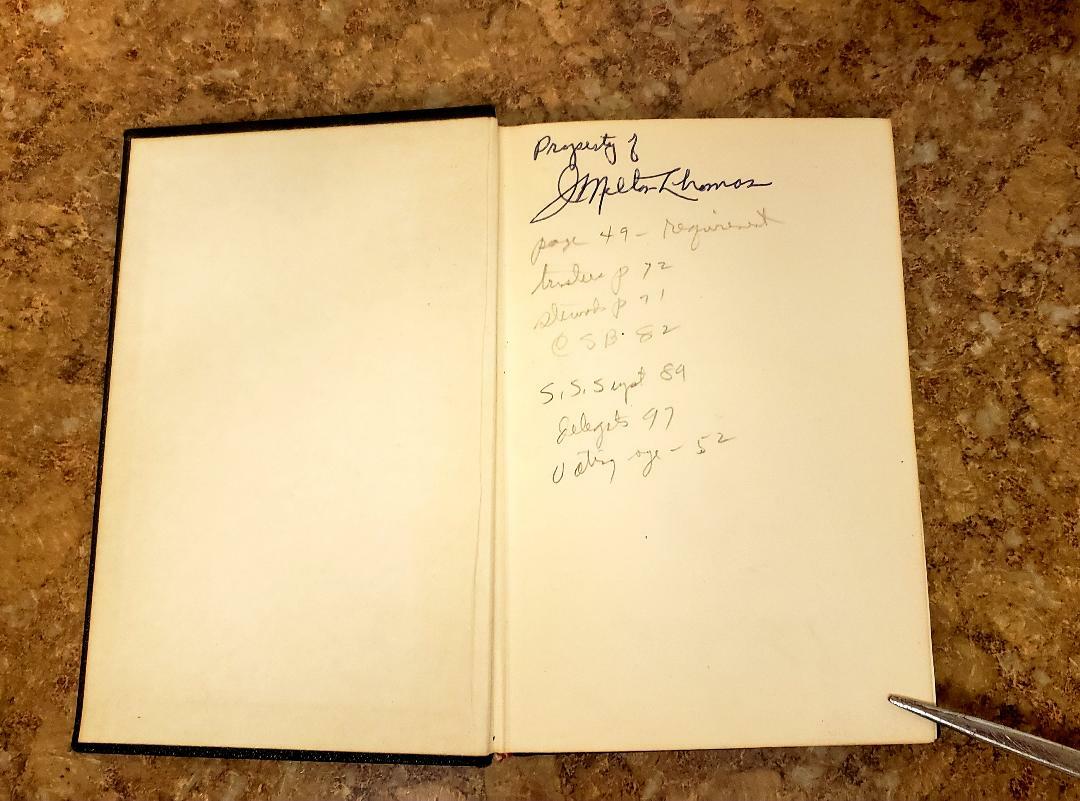 Property of
J Melton Thomas
page 49 - requirement
trustees p 72
stewards p 71
C S B. 82
S. S. Supt 89
delegates 97
Voting age - 52